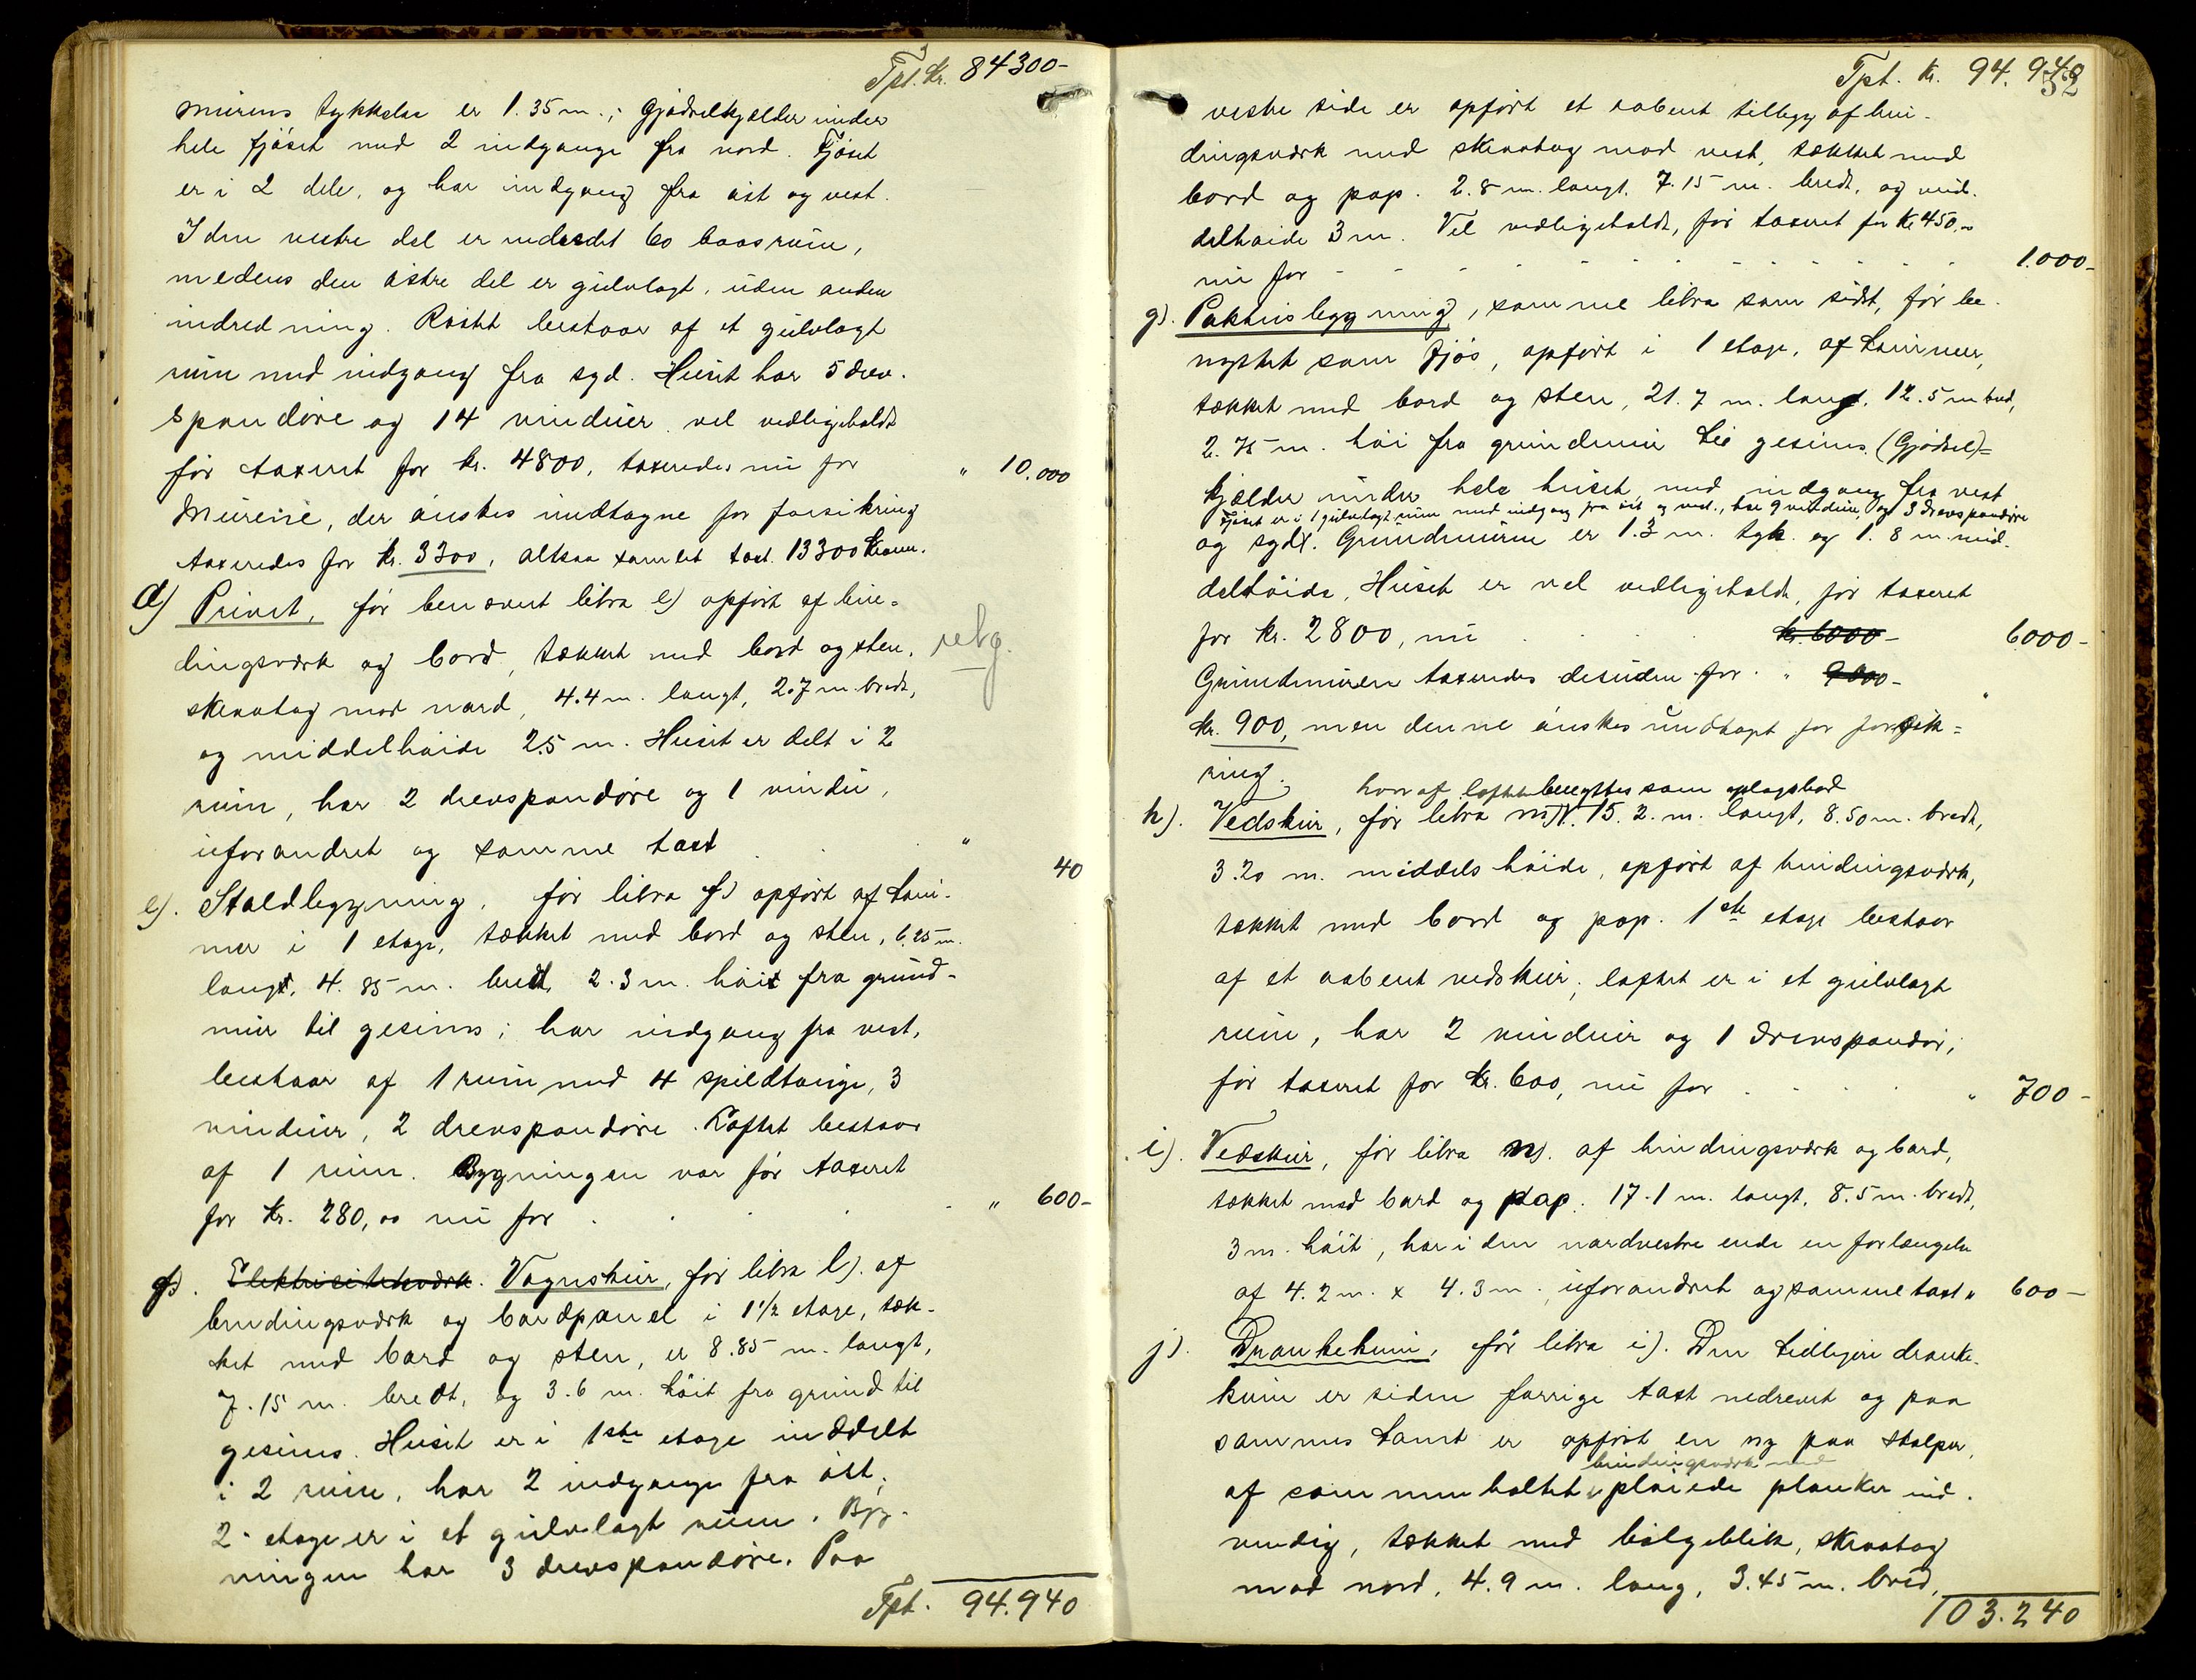 Tpt. Kr. 84300-
murens tykkelse er 1.35 m.; Gjødselkjælder under
hele fjöset med 2 indgange fra nord. Fjöset
er i 2 dele, og har indgang fra öst og vest.
I den vestre del er indredet 60 baasrum,
medens den östre del er gulvlagt, uden anden
indredning. Röstet bestaar af et gulvlagt
rum med indgang fra syd. Huset har 5 drev-
spandöre og 14 vinduer vel vedligeholdt
för taxeret for kr. 4800, taxeredes nu for " 10.000
Murene, der önskes undtagne for forsikring
taxeredes for kr. 3300, altsaa samlet taxt 13300 Kroner.
d) Privet, för benævnt litra e) opfört af bin-
dingsværk og bord, tækket med bord og sten,
skraatag mod nord, 4.4 m. langt, 2.7 m. bredt,
og middelhöide 2.5 m. Huset er delt i 2
rum, har 2 drevspandöre og 1 vindu,
uforandret og samme taxt . . " 40
e). Staldbygning, för litra f) opfört af töm-
mer i 1 etage, tækket med bord og sten, 6.25 m.
langt, 4.85 m. bredt, 2.3 m. höit fra grund-
mur til gesims; har indgang fra vest,
bestaar af 1 rum med 4 spildtauge, 3
vinduer, 2 drevspandöre. Loftet bestaar
af 1 rum. Bygningen var för taxeret
for Kr. 280,00 nu for . . . . " 600-
f). Elektricitetsværk. Vognskur, för litra l). af
bindingsværk og bordpanel i 1 1/2 etage, tæk-
ket med bord og sten, er 8.85 m. langt,
7.15 m. bredt, og 3.6 m. höit fra grund til
gesims. Huset er i 1ste etage inddelt
i 2 rum, har 2 indgange fra öst;
2- etage er i et gulvlagt rum. Byg-
ningen har 3 drevspandöre. Paa
Tpt. 94.940
Tpt. Kr. 94.940
52
vestre side er opfört et aabent tilbygg af bin-
dingsværk med skraatag mod vest, tækket med
bord og pap. 2.8 m. langt, 7.15 m. bredt, og mid-
delhöide 3 m. Vel vedligeholdt, för taxeret for Kr 450,-
nu for - - - - - - - - - 1.000-
g). Pakhusbygning, samme litra som sidst, för be-
nyttet som fjös, opfört i 1 etage, af tömmer,
tækket med bord og sten, 21.7 m. lang, 12.5 m bred,
2.75 m. höi fra grundmur til gesims. (Gjödsel)=
kjælder under hele huset med indgang fra vest
Fjöset er i 1 gulvlagt rum med indgang fra öst og vest, har 9 vinduer, og 3 drevspandöre
og syd. Grundmuren er 1.3 m. tyk og 1.8 m. mid-
delhöide. Huset er vel vedligeholdt, för taxeret
for Kr. 2800, nu . . . kr. 6000- 6000-
Grundmuren taxeredes desuden for . " 9000- "
Kr. 900, men denne önskes undtagt for forsik=
ring.
hvoraf loftet benyttes som oplagsbod
h). Vedskur, för litra m). 15.2. m. langt, 8.50 m. bredt,
3.20 m. middels höide, opfört af bindingsværk,
tækket med bord og pap. 1ste etage bestaar
af et aabent vedskur; loftet er i et gulvlagt
rum, har 2 vinduer og 1 drevspandör;
för taxeret for Kr. 600, nu for . . . " 700-
i). Vedskur, för litra n). af bindingsværk og bord,
tækket med bord og pap. 17.1 m. langt, 8.5 m. bredt,
3 m. höit, har i den nordvestre ende en forlængelse
af 4.2 m. x 4.3 m., uforandret og samme taxt " 600-
j). Drankekum, för litra i). Den tidligere dranke-
kum er siden forrige taxt nedrevet og paa
sammes tomt er opfört en ny paa stolper,
bindingsværk med
af sammenboltet plöiede planker ind-
vendig, tækket med bölgeblik, skraatag
mod nord, 4.9 m. lang, 3.45 m. bred,
103.240